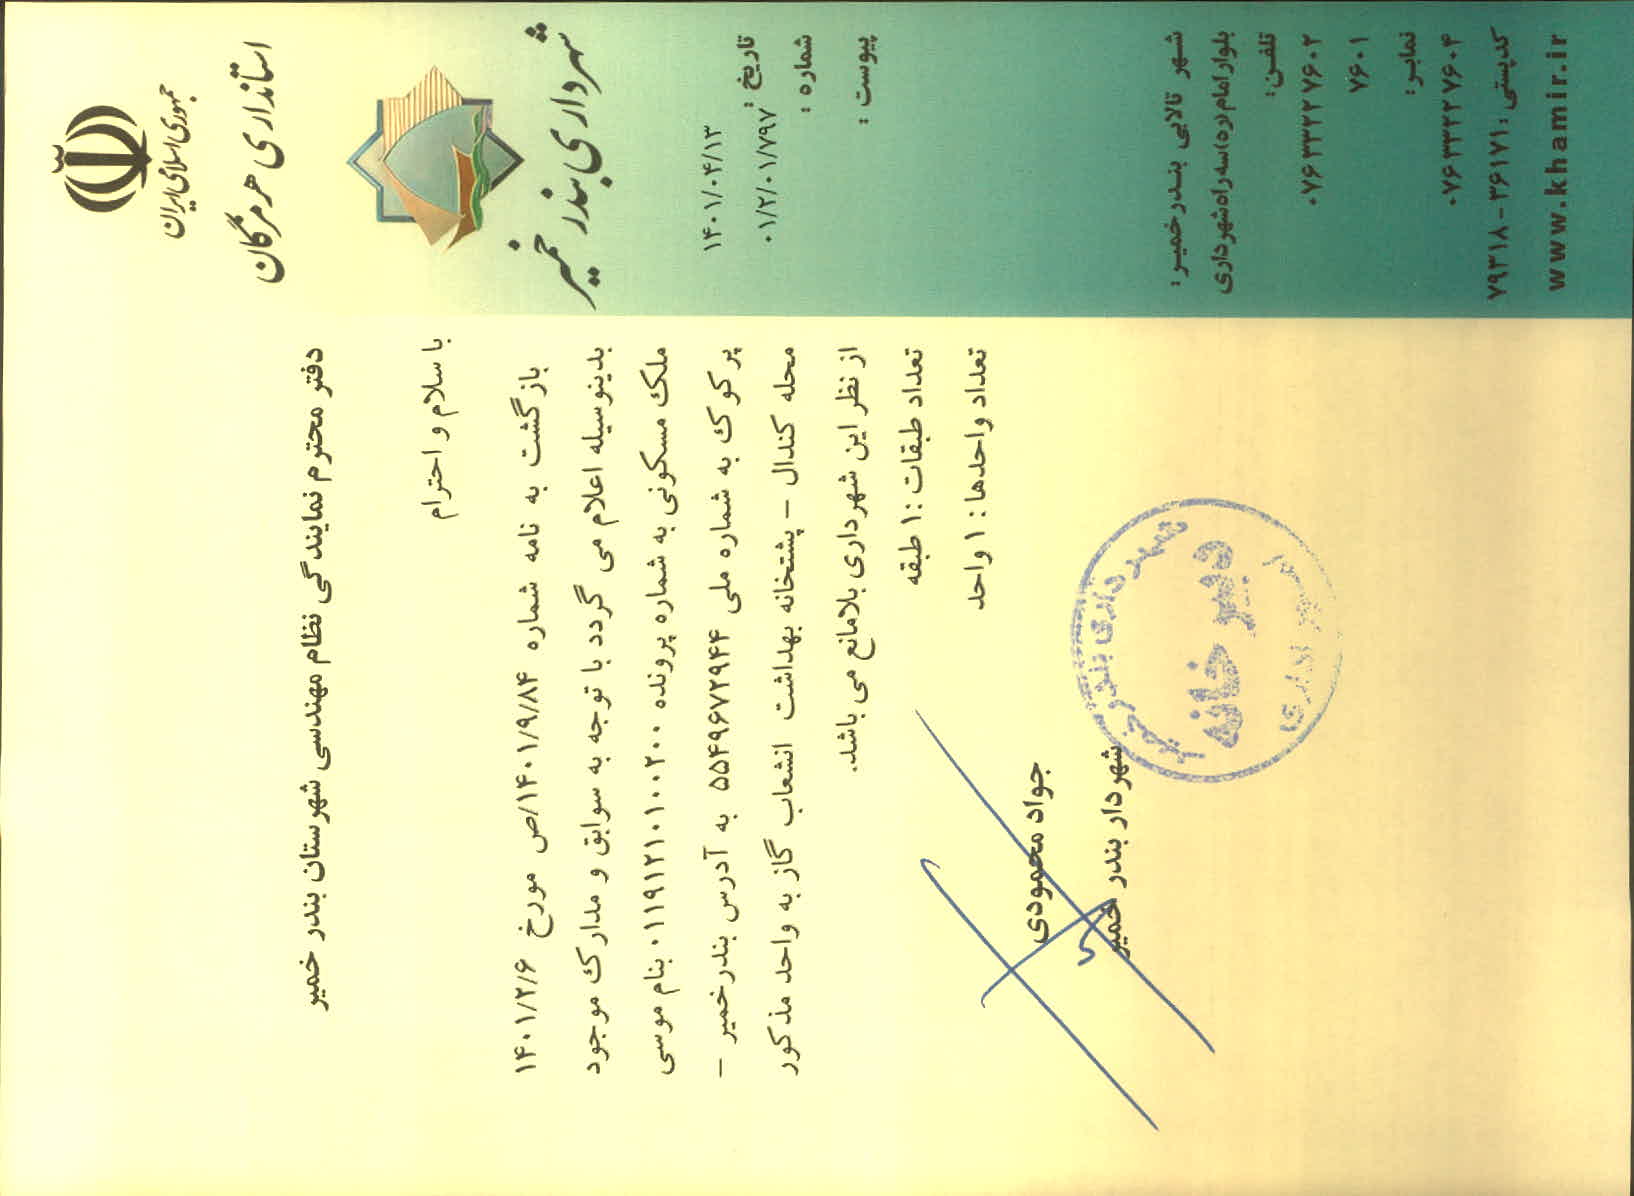 جمهوری اسلامی ایران
استانداری هرمزگان
شهرداری بندر خمیر
۱۴۰۱/۰۴/۱۳
تاریخ :
۰۱/۲/۰۱/۷۹۷
شماره :
پیوست :
دفتر محترم نمایندگی نظام مهندسی شهرستان بندر خمیر
با سلام و احترام
بازگشت به نامه شماره ۱۴۰۱/۹/۸۴/ص مورخ ۱۴۰۱/۲/۶
بدینوسیله اعلام می گردد با توجه به سوابق و مدارک موجود
ملک مسکونی به شماره پرونده ۰۱۱۹۱۲۱۰۱۰۰۲۰۰ بنام موسی
پرکوک به شماره ملی ۵۵۴۹۶۷۲۹۴۴ به آدرس بندرخمیر –
محله کندال - پشتخانه بهداشت انشعاب گاز به واحد مذکور
از نظر این شهرداری بلامانع می باشد.
تعداد طبقات :۱ طبقه
تعداد واحدها : ۱ واحد
جواد محمودی
شهردار بندر خمیر
شهرداری بندر خمیر
دبیرخانه
امور اداری
شهر تالابی بندرخمیر:
بلوار امام(ره)سه راه شهرداری
تلفن:
۰۷۶۳۳۲۲۷۶۰۲
۷۶۰۱
نمابر:
۰۷۶۳۳۲۲۷۶۰۴
کدپستی: ۳۶۱۷۱-۷۹۳۱۸
www.khamir.ir